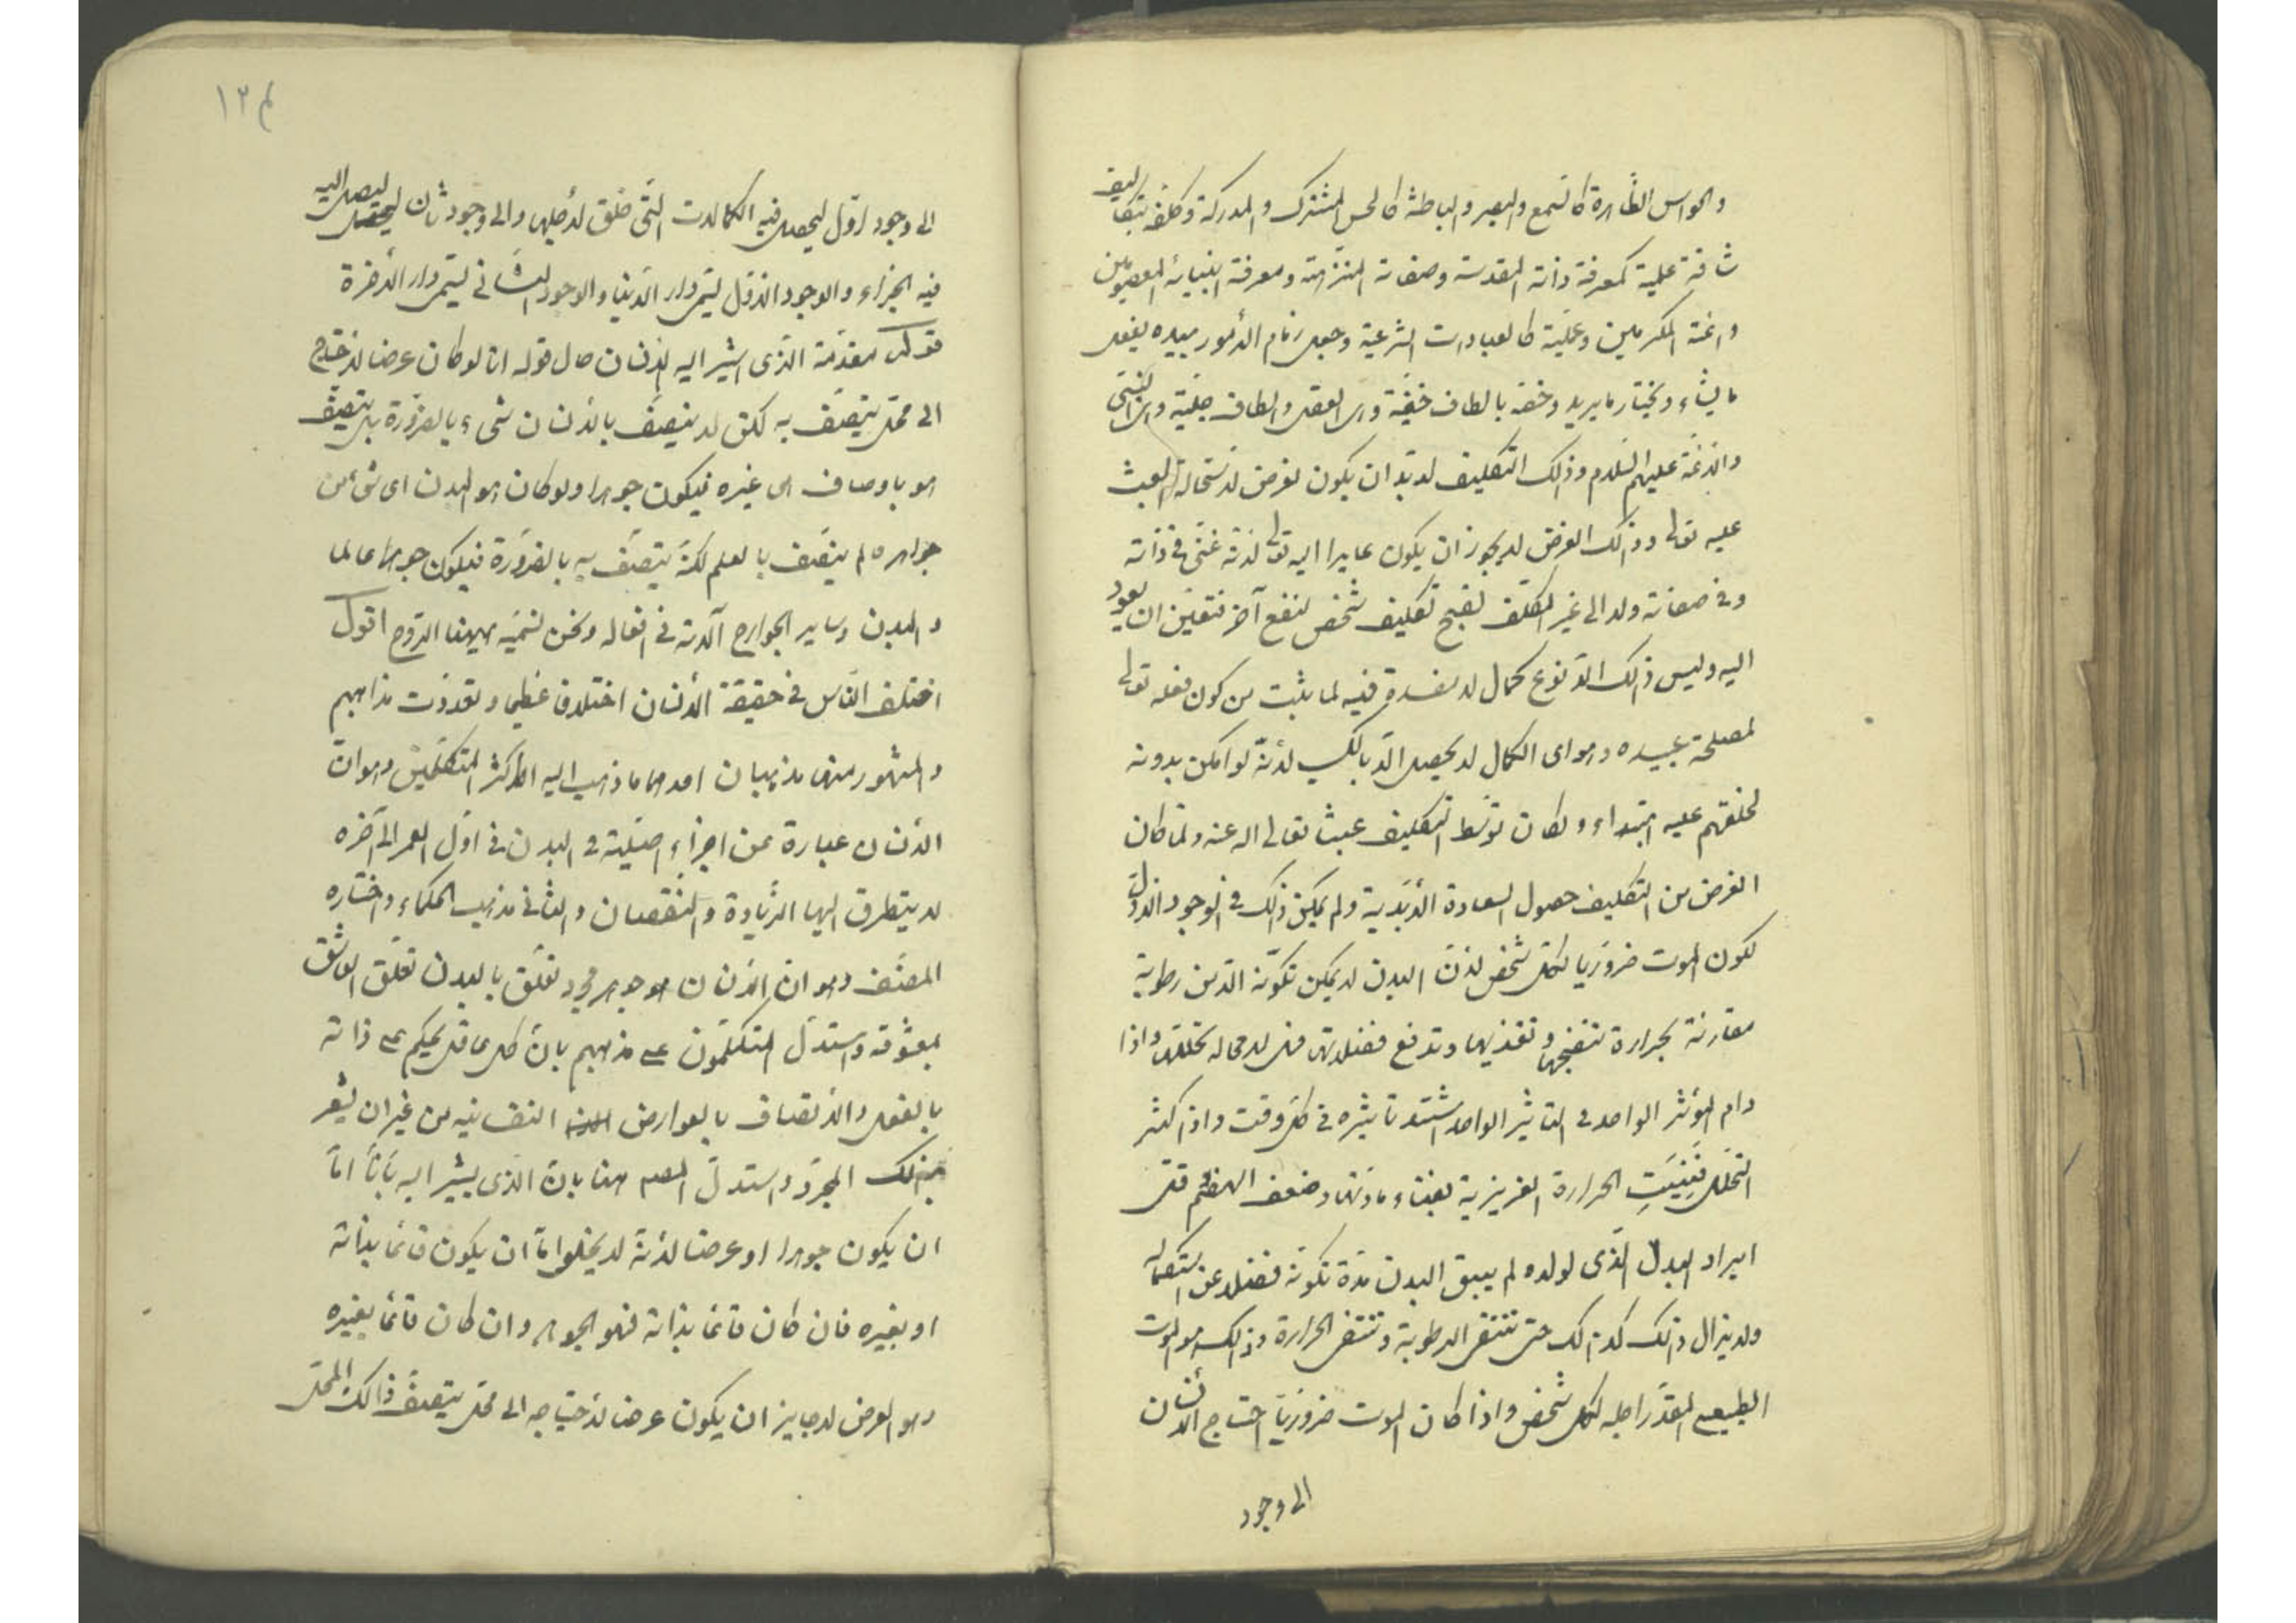 والحواس الظاهرة كالسمع والبصر والباطنة كالحس المشترك والمدركة وكلفه بتكاليف
شاقة علمية كمعرفة ذاته المقدسة وصفاته المنزهة ومعرفة انبيائه المعصومين
وائمته المكرمين وعملية كالعبادات الشرعية وجعل زمام الأمور بيده يفعل
ما يشاء ويختار ما يريد وخصه بالطاف خفية وهى العقل والطاف جلية وهى النبى
والائمة عليهم السلام وذلك التكليف لا بد ان يكون لغرض لاستحالة العبث
عليه تعالى وذلك الغرض لا يجوز ان يكون عايدا اليه تعالى لانه غنى فى ذاته
وفى صفاته ولا الى غير المكلف لقبح تكليف شخص لنفع آخر فتعين ان يعود
اليه وليس ذلك الا نوع كمال لا مفسدة فيه لما يثبت من كون فعله تعالى
لمصلحة عبيده وهو اى الكمال لا يحصل الا بالكسب لأنه لو امكن بدونه
لخلقهم عليه ابتداء ولكان توسط التكليف عبثا تعالى الله عنه ولما كان
الغرض من التكليف حصول السعادة الأبدية ولم يمكن ذلك فى الوجود الاول
لكون الموت ضروريا لكل شخص لان البدن لا يمكن تكونه الا من رطوبة
مقارنة بحرارة تنضجها وتغذيها وتدفع فضلاتها فهى لا محالة تحللها واذا
دام المؤثر الواحد فى التاثير الواحد اشتد تاثيره فى كل وقت واذا كثر
التحلل فَنِيَتِ الحرارة الغريزية بفناء مادتها وضعف الهضم قل
ايراد البدل الذى لولاه لم يبق البدن مدة تكونه فضلا عن استكماله
ولا يزال ذلك كذلك حتى تنتفى الرطوبة وتنتفى الحرارة وذلك هو الموت
الطبيعى المقدر اجله لكل شخص واذا كان الموت ضروريا احتاج الانسان
الى وجود
الى وجود اول ليحصل فيه الكمالات التى خلق لأجلها والى وجود ثان ليحصل ليصل اليه
فيه الجزاء والوجود الاول ليتم دار الدنيا والوجود الثانى ليتم دار الأخرة
قوله مقدمة الذى اشير اليه الانسان حال قوله انا لو كان عرضا لاحتاج
الى محل يتصف به لكن لا يتصف بالأنسان شىء بالضرورة بل يتصف
هو باوصاف هى غيره فيكون جوهرا ولو كان هو البدن اى شئ من
جوارحه لم يتصف بالعلم لكنه يتصف به بالضرورة فيكون جوهرا عالما
والبدن وساير الجوارح آلاته فى افعاله ونحن نسميه هيهنا الروح اقول
اختلف الناس فى حقيقة الأنسان اختلافا عظيما وتعددت مذاهبهم
والمشهور منها مذهبان احدهما ما ذهب اليه اكثر المتكلمين وهو ان
الأنسان عبارة عن اجزاء اصلية فى البدن فى اول العمر الى آخره
لا يتطرق اليها الزيادة والنقصان والثانى مذهب الحكماء واختاره
المصنف وهو ان الانسان هو جوهر مجرد تعلق بالبدن تعلق العاشق
بمعشوقه واستدل المتكلمون على مذهبهم بان كل عاقل يحكم على ذاته
بالفعل والاتصاف بالعوارض النفسانيه من غير ان يشعر
بذلك المجرد واستدل المصه هنا بان الذى يشير اليه بانا اما
ان يكون جوهرا او عرضا لأنه لا يخلوا ما ان يكون قائما بذاته
او بغيره فان كان قائما بذاته فهو الجوهر وان كان قائما بغيره
وهو العرض لا جايز ان يكون عرضا لأحتياجه الى محل يتصف ذالك المحل